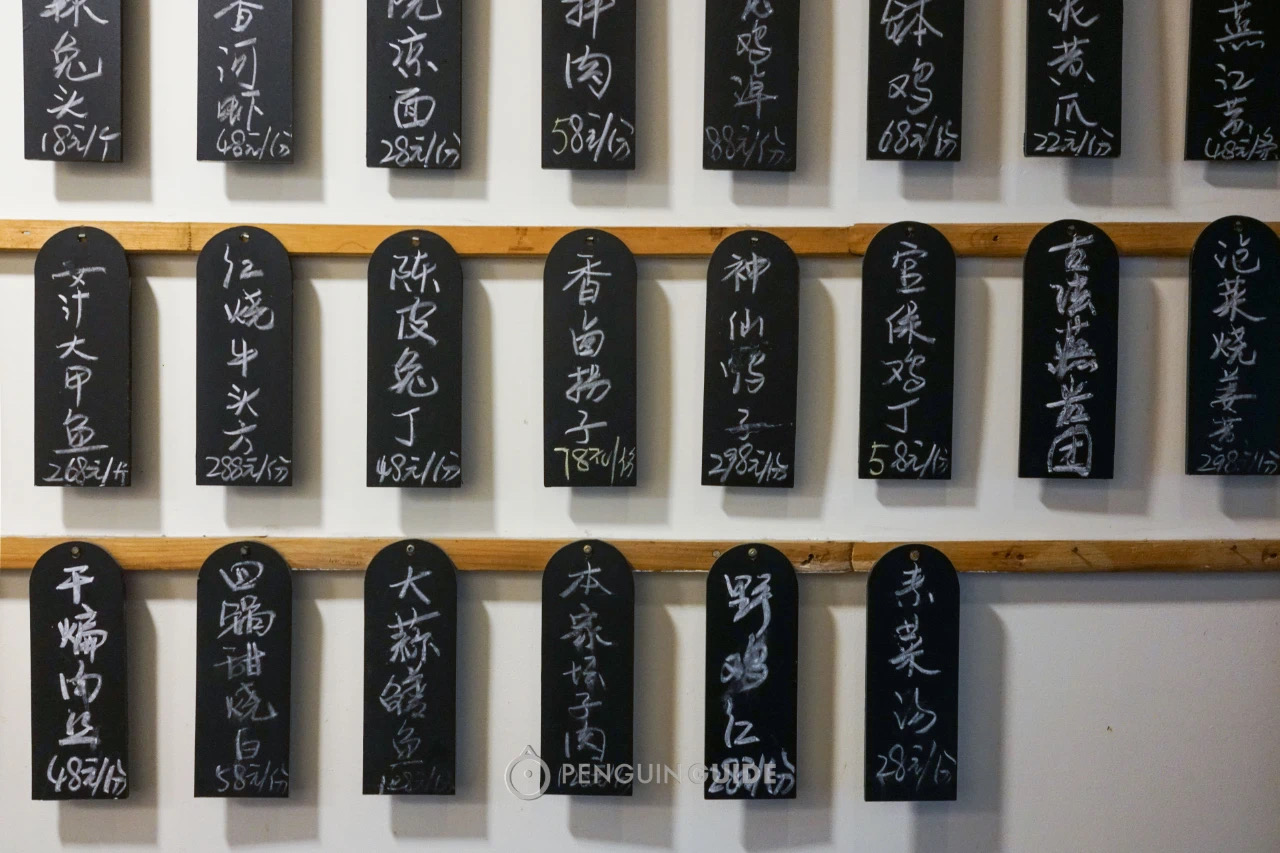 兔头
18元/个
香河虾
48元/份
院凉面
28元/份
拌肉
58元/份
鸡淖
88元/份
钵鸡
68元/份
泥黄瓜
22元/份
燕江苔
48元/条
汁大甲鱼
268元/斤
红烧牛头方
288元/份
陈皮兔丁
48元/份
香卤扬子
78元/份
神仙鸭子
298元/份
宫保鸡丁
58元/份
古法燕粪团
泡菜烧姜
298元/份
干煸肉丝
48元/份
四锅甜烧白
58元/份
大蒜鳝鱼
128元/份
本家坛子肉
野鸡红
28元/份
素菜汤
28元/份
PENGUIN GUIDE